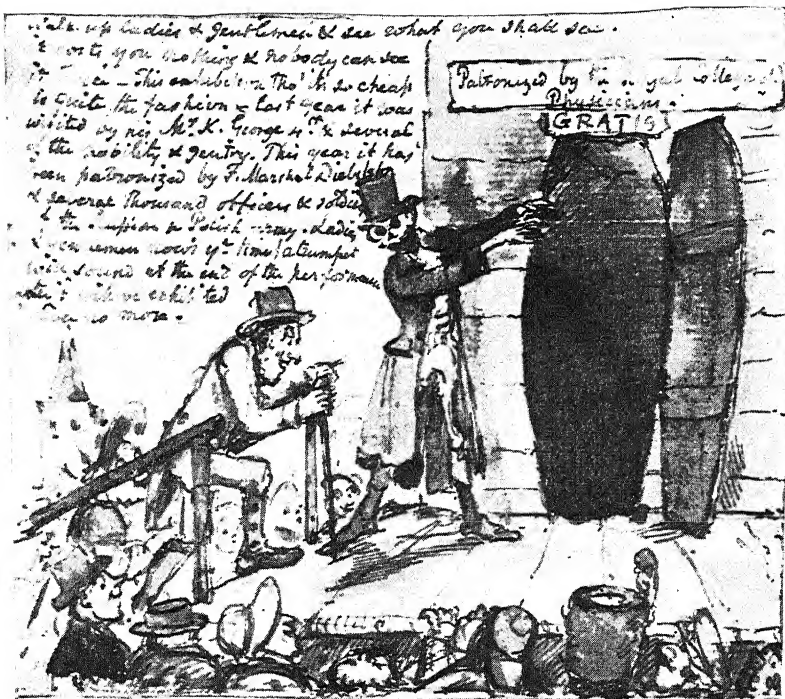 Walk up Ladies & Gentlemen & see what you shall see.
It costs you nothing & nobody can see
This exhibition tho' it is so cheap
is quite the fashion & last year it was
visited by his My. K. George 4th. & several
of the nobility & gentry. This year it has
been patronized by F. Marshal Diebitsch
& several thousand officers & soldiers
of the Russian & Polish army. Ladies
& Gentlemen now's yr. time! a trumpet
will sound at the end of the performance
& will be exhibited
no more.
Patronized by the Royal College of
Physicians.
GRATIS